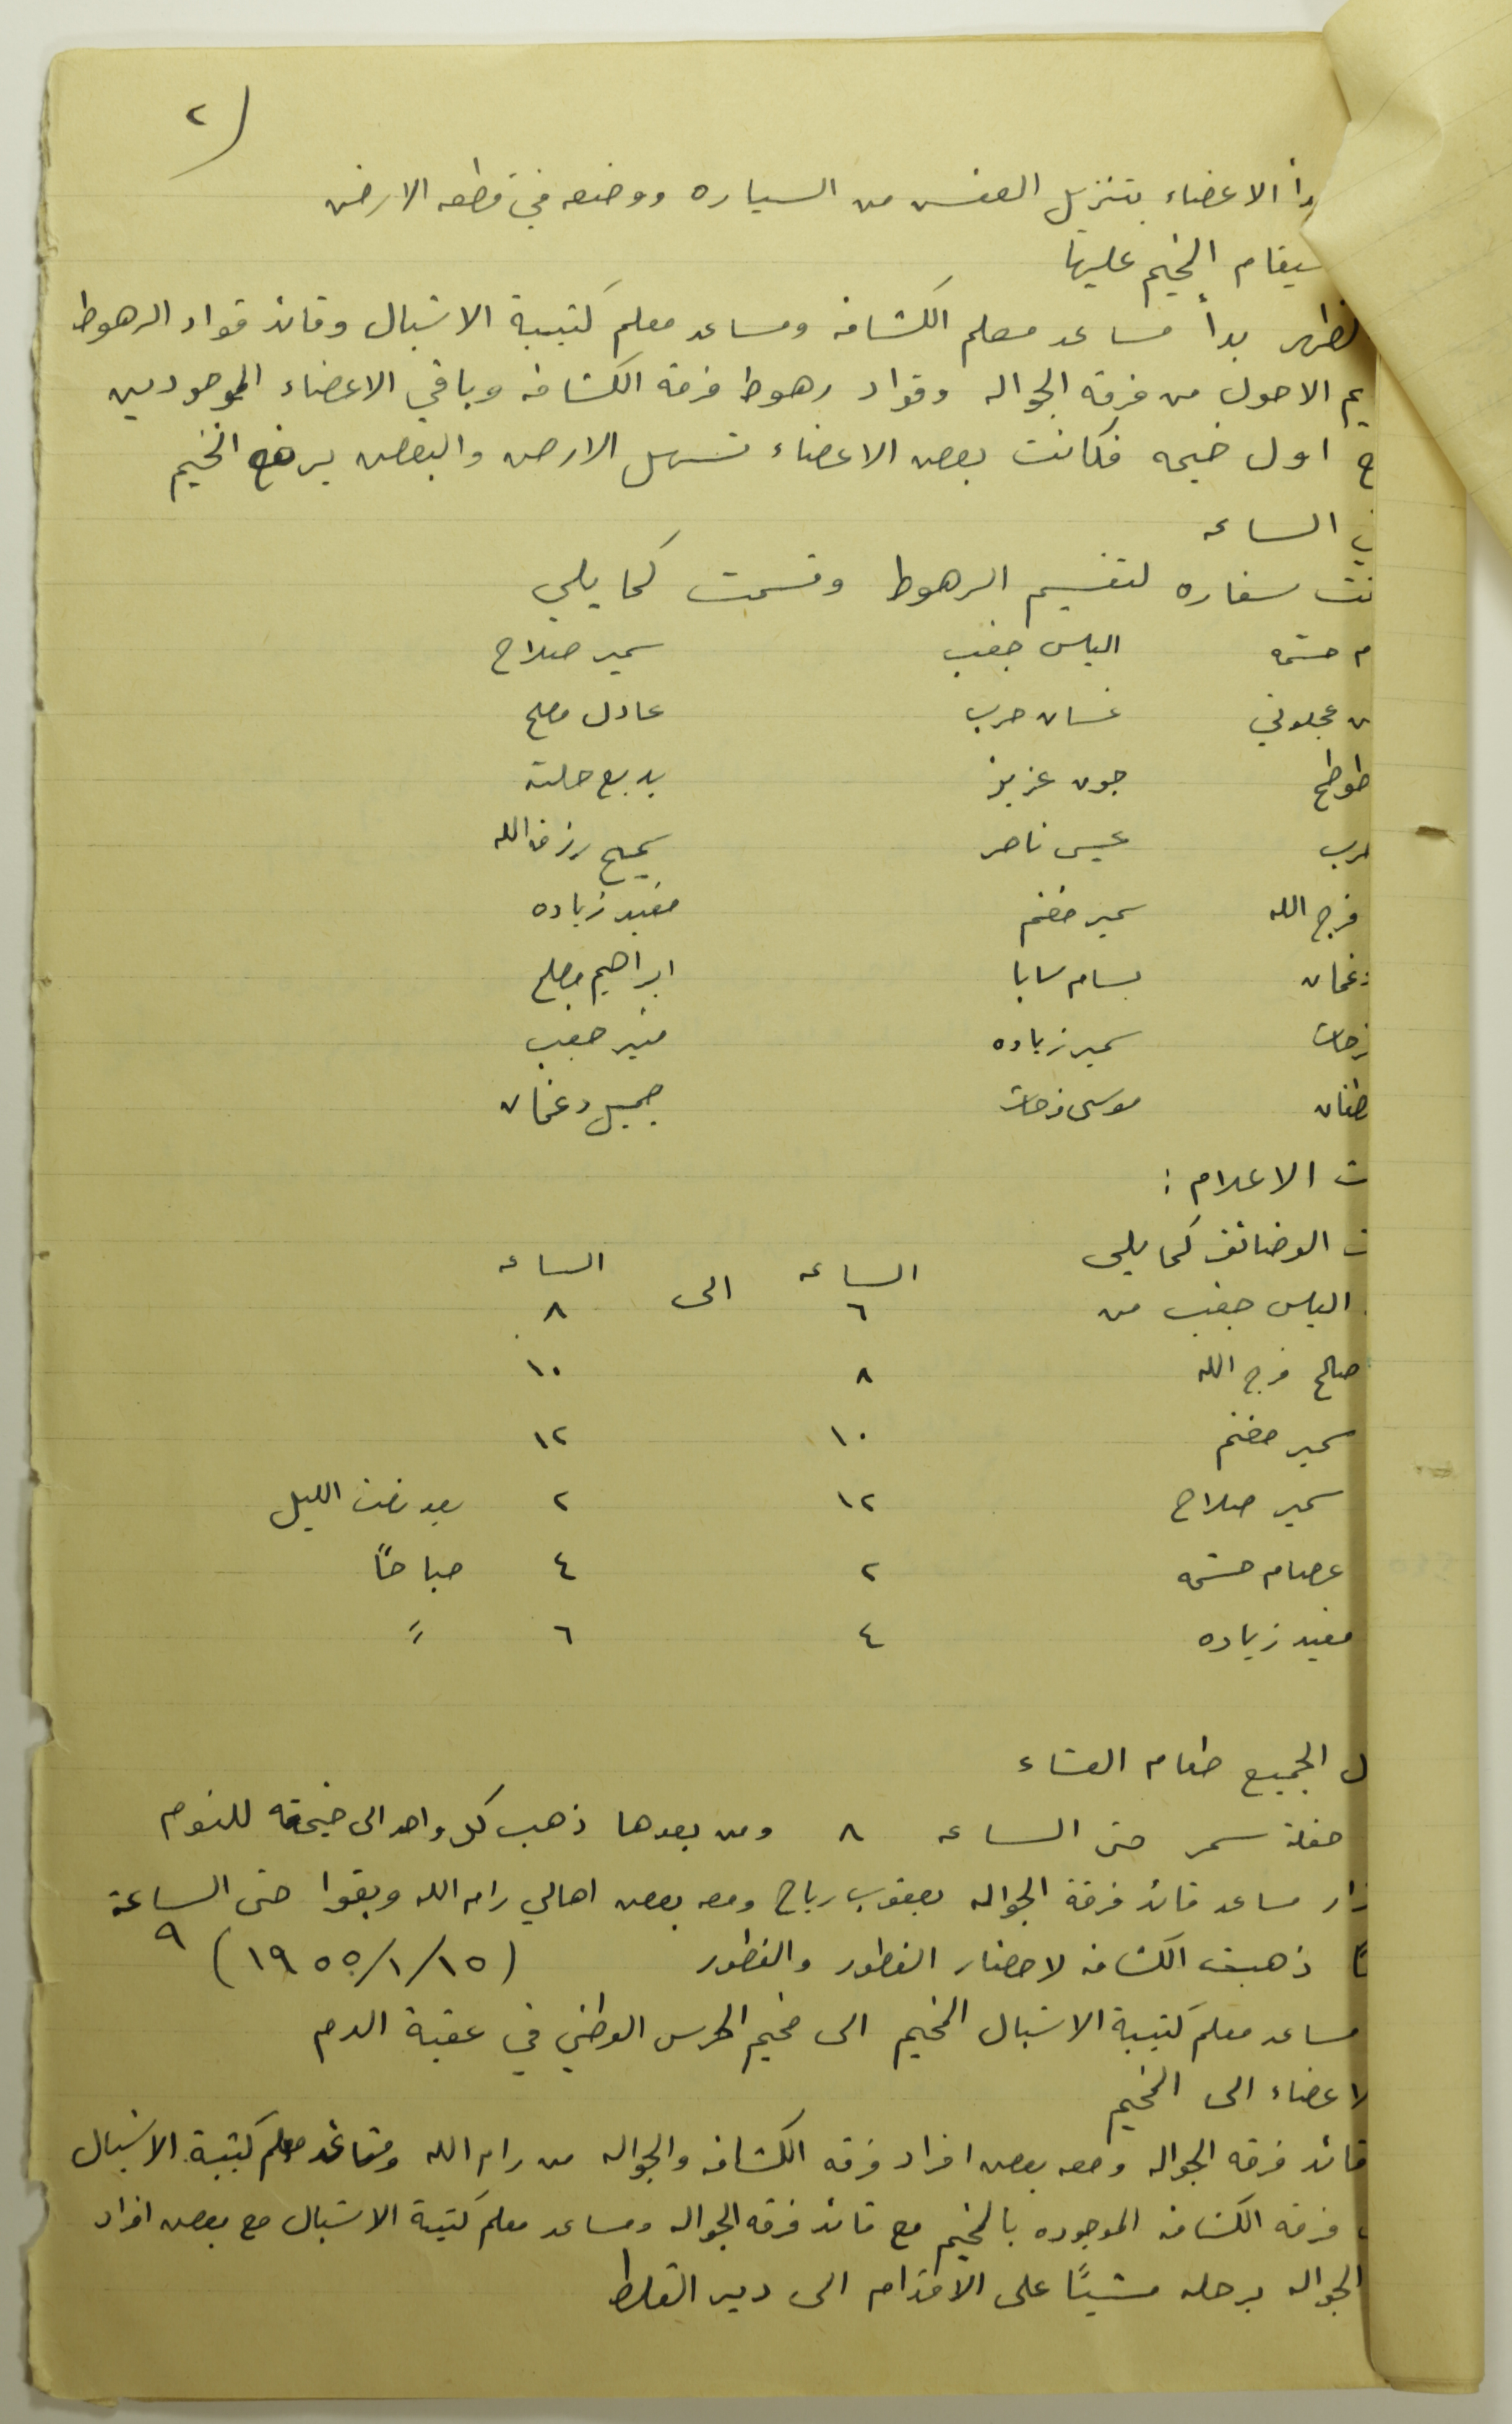 (٢
بدأ الاعضاء بتنزيل العفش من السياره ووضعه في قطعه الارض
سيقام المخيم عليها
لظهر بدأ مساعد معلم الكشافه ومساعد معلم كتيبة الاشبال وقائد قواد الرهوط
يم الاصول من فرقه الجواله وقواد رهوط فرقة الكشافه وباقي الاعضاء الموجودين
ع اول خيمه فكانت بعض الاعضاء تسهل الارض والبعض يرفع الخيم
ي الساعه
نت سفاره لتقسيم الرهوط وقسمت كما يلي
م حشمه الياس جغب سمير صلاح
ن عجلوني غسان حرب عادل مصلح
طوطح جون عزيز بديع حلته
حرب عيسى ناصر سميح رزق الله
فرج الله سمير مغنم مفيد زياده
دغمان بسام سابا ابراهيم مصلح
فرحات سمير زياده منير جغب
طفان موسى فرحات جميل دغمان
ت الاعلام :
ت الوضائف كما يلي
الساعه الى الساعه
الياس جغب من ٦ ٨
صالح فرج الله ٨ ١٠
سمير مغنم ١٠ ١٢
سمير صلاح ١٢ ٢ بعد نصف الليل
عصام حشمه ٢ ٤ صباحاً
مفيد زياده ٤ ٦ "
ل الجميع طعام العشاء
حفلة سمر حتى الساعه ٨ ومن بعدها ذهب كل واحد الى خيمته للنوم
زار مساعد قائد فرقة الجواله يعقوب رباح ومعه بعض اهالي رام الله وبقوا حتى الساعة ٩
ذهبت الكشافه لاحضار الفطور والفطور (١٩٥٥/١/١٥)
مساعد معلم كتيبة الاشبال المخيم الى مخيم الحرس الوطني في عقبة الدم
لاعضاء الى المخيم
قائد فرقه الجواله ومعه بعض افراد فرقه الكشافه والجواله من رام الله ومساعد معلم كتيبة الاشبال
فرقه الكشافه الموجوده بالمخيم مع قائد فرقه الجواله ومساعد معلم كتيبة الاشبال مع بعض افراد
الجواله برحله مشياً على الاقدام الى دير القلط